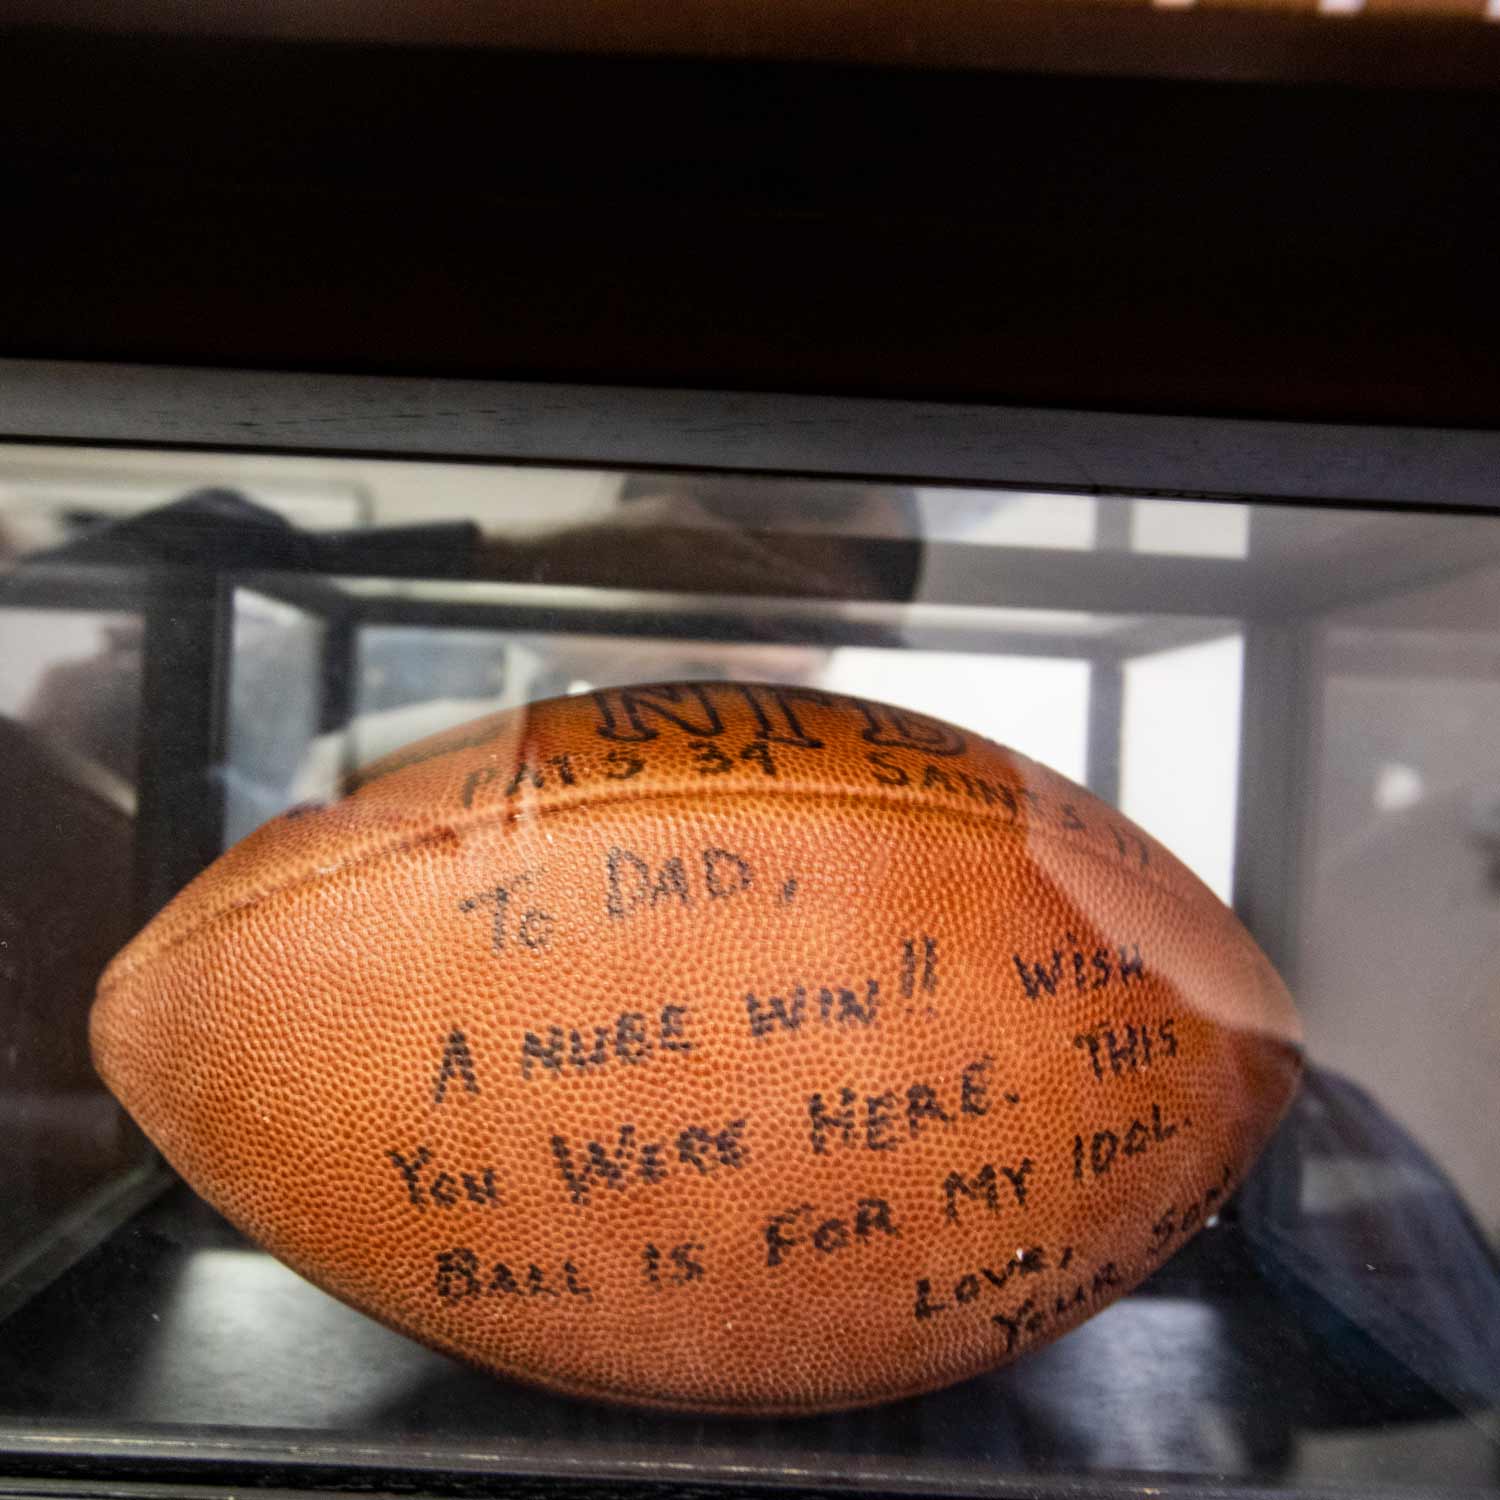 PATS 34 SAINTS 17
To DAD,
A HUGE WIN!! WISH
You WERE HERE. THIS
BALL IS FOR MY IDOL.
LOVE,
YOUR SON